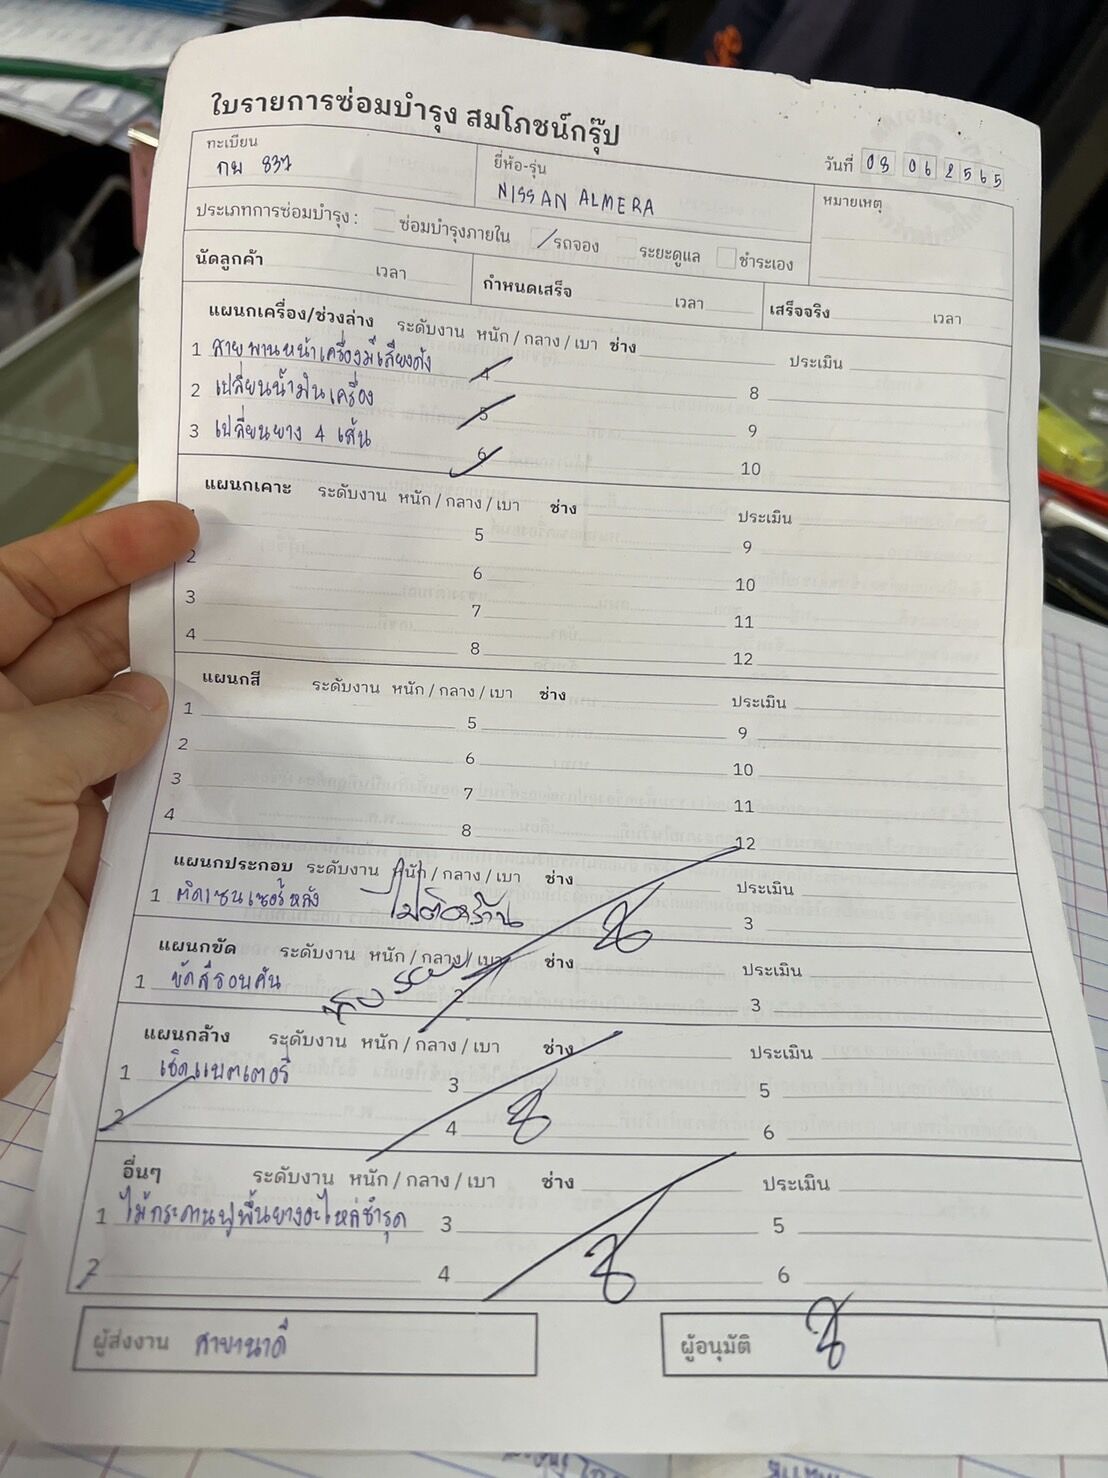 ใบรายการซ่อมบำรุง สมโภชน์กรุ๊ป
วันที่ 08 06 2565
ทะเบียน
กผ 837
ยี่ห้อ-รุ่น
NISSAN ALMERA
หมายเหตุ
ประเภทการซ่อมบำรุง : ซ่อมบำรุงภายใน / รถจอง ระยะดูแล ชำระเอง
นัดลูกค้า เวลา กำหนดเสร็จ เวลา เสร็จจริง เวลา
แผนกเครื่อง/ช่วงล่าง ระดับงาน หนัก / กลาง / เบา ช่าง ประเมิน
1 สายพานหน้าเครื่องมีเสียงดัง 4 8
2 เปลี่ยนน้ำมันเครื่อง 5 9
3 เปลี่ยนยาง 4 เส้น 6 10
แผนกเคาะ ระดับงาน หนัก / กลาง / เบา ช่าง ประเมิน
1 5 9
2 6 10
3 7 11
4 8 12
แผนกสี ระดับงาน หนัก / กลาง / เบา ช่าง ประเมิน
1 5 9
2 6 10
3 7 11
4 8 12
แผนกประกอบ ระดับงาน หนัก / กลาง / เบา ช่าง ประเมิน
1 ติดเซนเซอร์หลัง 3
แผนกขัด ระดับงาน หนัก / กลาง / เบา ช่าง ประเมิน
1 ขัดสีรอบคัน 2 3
แผนกล้าง ระดับงาน หนัก / กลาง / เบา ช่าง ประเมิน
1 เช็คแบตเตอรี่ 3 5
2 4 6
อื่นๆ ระดับงาน หนัก / กลาง / เบา ช่าง ประเมิน
1 ไม้กระดานปูพื้นยางอะไหล่ชำรุด 3 5
2 4 6
ผู้ส่งงาน สาขานาดี
ผู้อนุมัติ